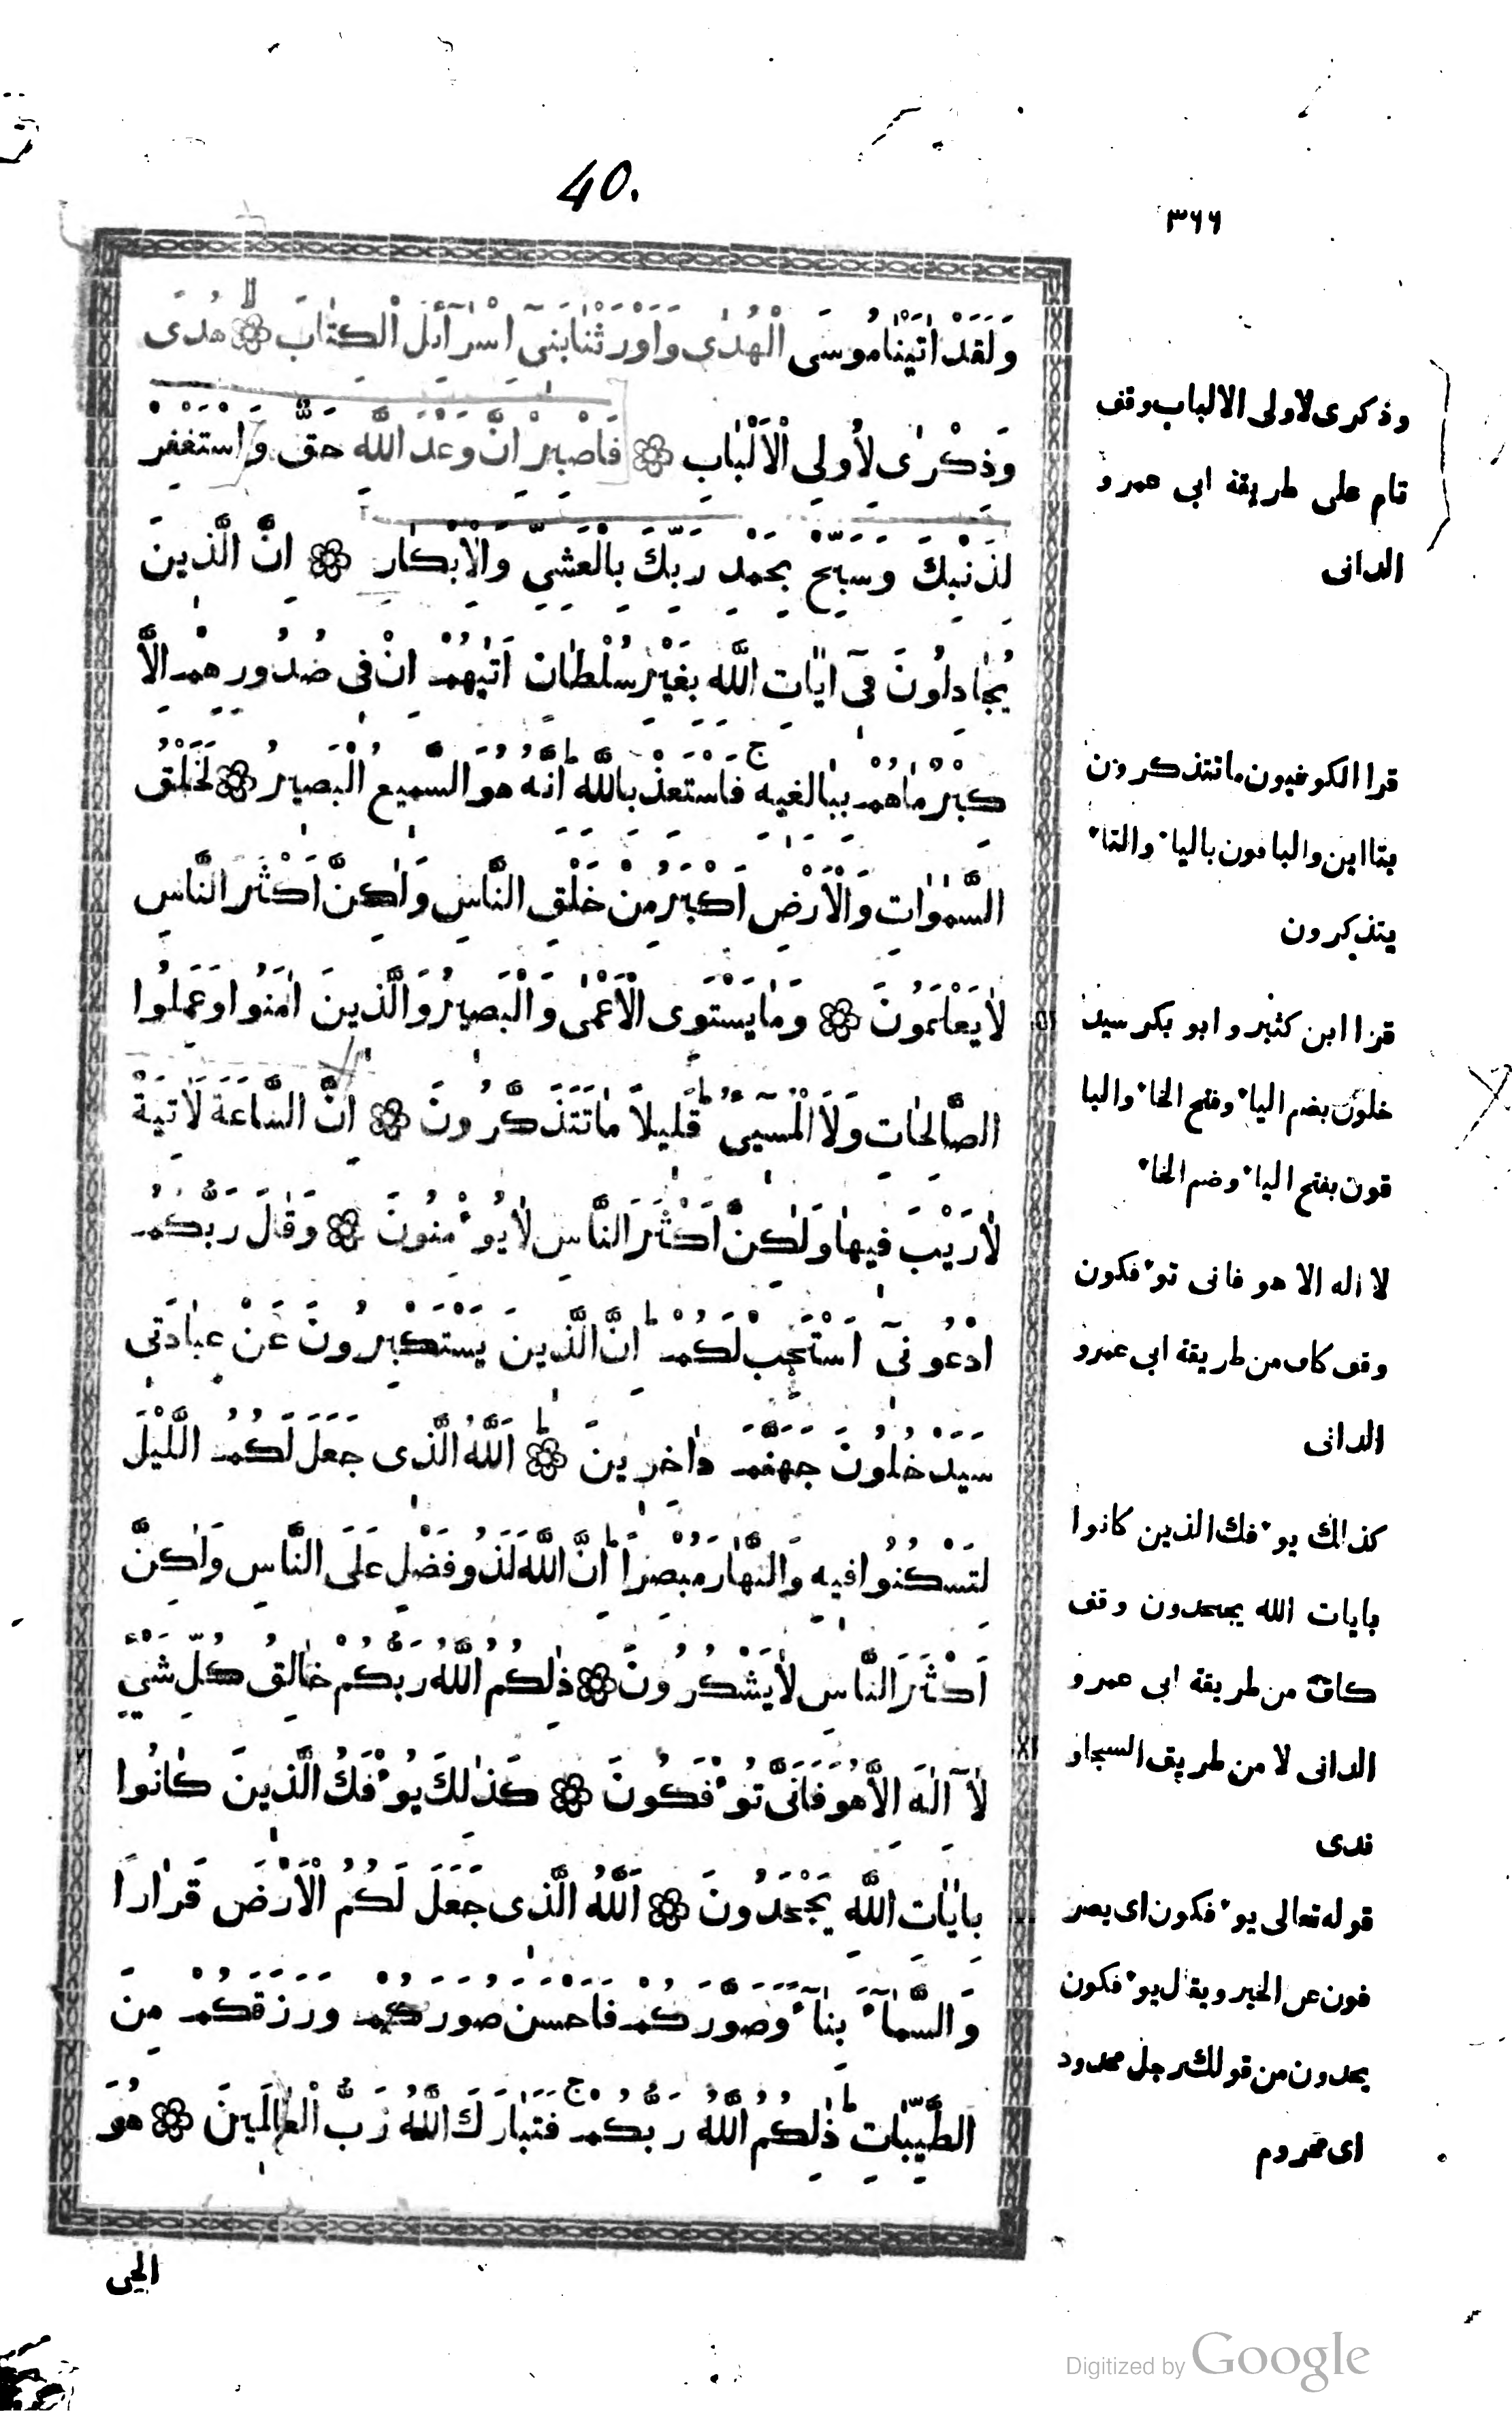 40.
٣٦٦
وَلَقَدْ اٰتَيْنَا مُوسَى الْهُدٰى وَاَوْرَثْنَا بَنِىٓ اِسْرَآئِلَ الْكِتَابَ ۞ هُدًى
وَذِكْرٰى لِأُولِى الْاَلْبَابِ ۞ فَاصْبِرْ اِنَّ وَعْدَ اللّٰهِ حَقٌّ وَاسْتَغْفِرْ
لِذَنْبِكَ وَسَبِّحْ بِحَمْدِ رَبِّكَ بِالْعَشِىِّ وَالْاِبْكَارِ ۞ اِنَّ الَّذِينَ
يُجَادِلُونَ فِىٓ اٰيَاتِ اللّٰهِ بِغَيْرِ سُلْطَانٍ اَتٰيهُمْ اِنْ فِى صُدُورِهِمْ اِلَّا
كِبْرٌ مَاهُمْ بِبَالِغِيهِ ج فَاسْتَعِذْ بِاللّٰهِ ط اِنَّهُ هُوَ السَّمِيعُ الْبَصِيرُ ۞ لَخَلْقُ
السَّمٰوَاتِ وَالْاَرْضِ اَكْبَرُ مِنْ خَلْقِ النَّاسِ وَلٰكِنَّ اَكْثَرَ النَّاسِ
لَا يَعْلَمُونَ ۞ وَمَا يَسْتَوِى الْاَعْمٰى وَالْبَصِيرُ وَالَّذِينَ اٰمَنُوا وَعَمِلُوا
الصَّالِحَاتِ وَلَا الْمُسِيىءُ ط قَلِيلاً مَا تَتَذَكَّرُونَ ۞ اِنَّ السَّاعَةَ لَاٰتِيَةٌ
لَا رَيْبَ فِيهَا وَلٰكِنَّ اَكْثَرَ النَّاسِ لَا يُؤْمِنُونَ ۞ وَقَالَ رَبُّكُمُ
ادْعُونِىٓ اَسْتَجِبْ لَكُمْ ط اِنَّ الَّذِينَ يَسْتَكْبِرُونَ عَنْ عِبَادَتِى
سَيَدْخُلُونَ جَهَنَّمَ دَاخِرِينَ ۞ اَللّٰهُ الَّذِى جَعَلَ لَكُمُ اللَّيْلَ
لِتَسْكُنُوا فِيهِ وَالنَّهَارَ مُبْصِرًا ط اِنَّ اللّٰهَ لَذُو فَضْلٍ عَلَى النَّاسِ وَلٰكِنَّ
اَكْثَرَ النَّاسِ لَا يَشْكُرُونَ ۞ ذٰلِكُمُ اللّٰهُ رَبُّكُمْ خَالِقُ كُلِّ شَىْءٍ
لَآ اِلٰهَ اِلَّا هُوَ فَاَنّٰى تُؤْفَكُونَ ۞ كَذٰلِكَ يُؤْفَكُ الَّذِينَ كَانُوا
بِاٰيَاتِ اللّٰهِ يَجْحَدُونَ ۞ اَللّٰهُ الَّذِى جَعَلَ لَكُمُ الْاَرْضَ قَرَارًا
وَالسَّمَآءَ بِنَآءً وَصَوَّرَكُمْ فَاَحْسَنَ صُوَرَكُمْ وَرَزَقَكُمْ مِنَ
الطَّيِّبَاتِ ط ذٰلِكُمُ اللّٰهُ رَبُّكُمْ ج فَتَبَارَكَ اللّٰهُ رَبُّ الْعَالَمِينَ ۞ هُوَ
الحى
وذكرى لاولى الالباب وقف
تام على طريقة ابى عمرو
الدانى
قرا الكوفيون ما تتذكرون
بتاءين والباقون بالياء والتاء
يتذكرون
قرا ابن كثير وابو بكر سيد
خلون بضم الياء وفتح الخاء والبا
قون بفتح الياء وضم الخاء
لا اله الا هو فانى توءفكون
وقف كاف من طريقة ابى عمرو
الدانى
كذلك يوءفك الذين كانوا
بايات الله يجحدون وقف
كاف من طريقة ابى عمرو
الدانى لا من طريق السجاو
ندى
قوله تعالى يوءفكون اى يصر
فون عن الخير ويقال يوءفكون
يحدون من قولك رجل محدود
اى محروم
Digitized by Google